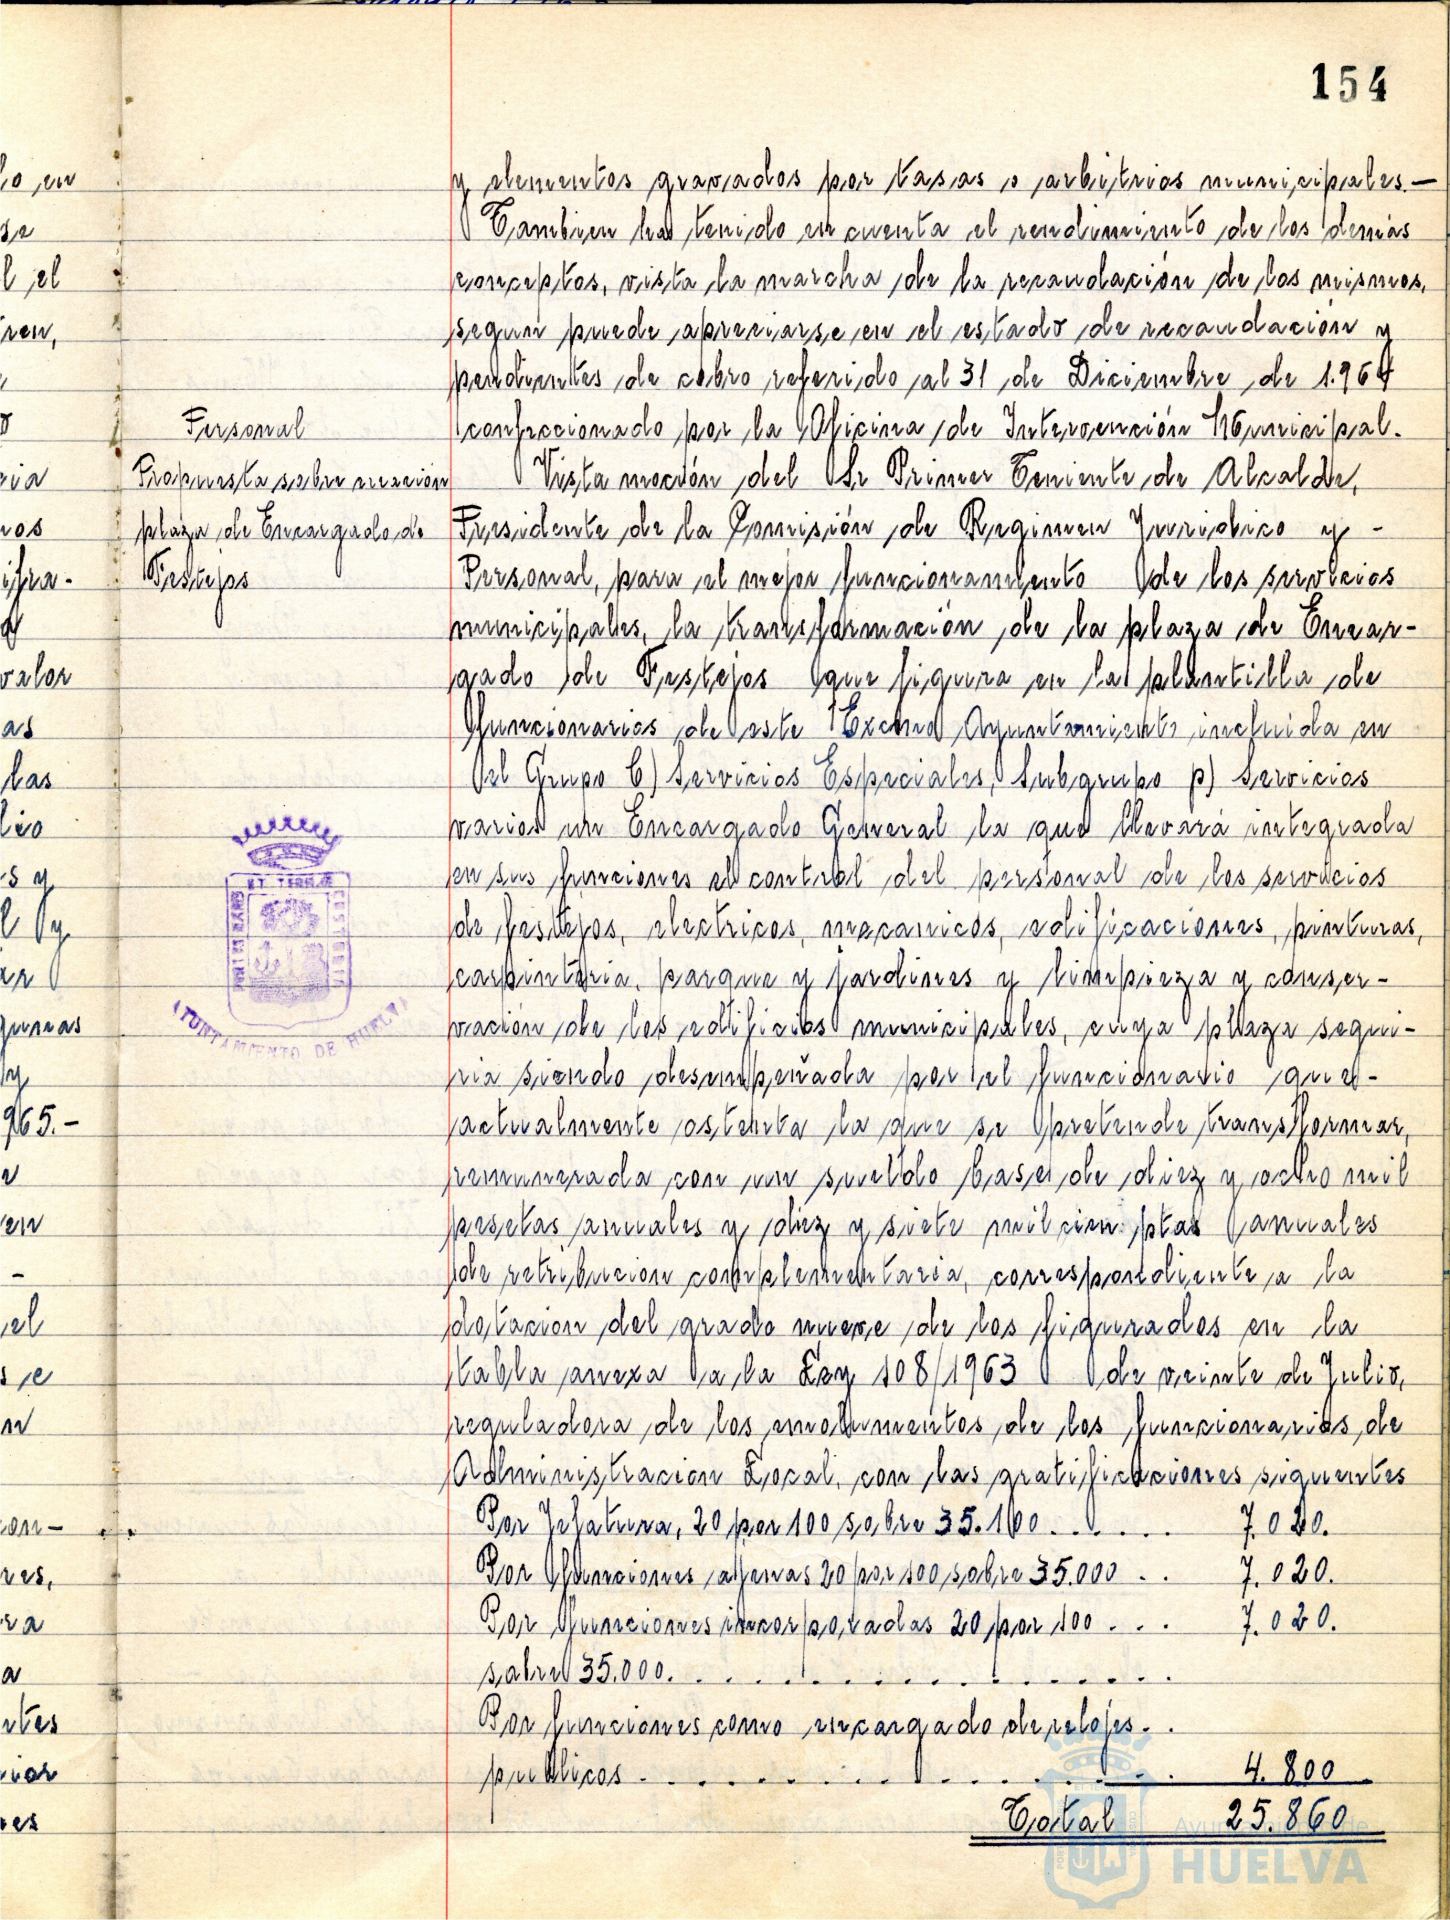 154
lo en
se
l el
ren,
o
cia
nos
ifra-
valor
as
las
lio
s y
l y
ar
gunas
y
965.-
e
en
-
el
se
n
con-
res,
ra
a
ntes
rior
res
Personal
Propuesta sobre creación
plaza de Encargado de
Festejos
AYUNTAMIENTO DE HUELVA
y elementos gravados por tasas o arbitrios municipales.—
Tambien ha tenido en cuenta el rendimiento de los demás
conceptos, vista la marcha de la recaudación de los mismos,
segun puede apreciarse en el estado de recaudación y
pendientes de cobro referido al 31 de Diciembre de 1.964
confeccionado por la Oficina de Intervención Municipal.
Vista moción del Sr Primer Teniente de Alcalde,
Presidente de la Comisión de Regimen Juridico y -
Personal, para el mejor funcionamiento de los servicios
municipales, la transformación de la plaza de Encar-
gado de Festejos que figura en la plantilla de
funcionarios de este Excmo Ayuntamiento incluida en
el Grupo C) Servicios Especiales, Subgrupo p) Servicios
varios un Encargado General la que llevará integrada
en sus funciones el control del personal de los servicios
de festejos, electricos, mecanicos, edificaciones, pinturas,
carpinteria, parque y jardines y limpieza y conser-
vación de los edificios municipales, cuya plaza segui-
ria siendo desempeñada por el funcionario que-
actualmente ostenta la que se pretende transformar,
remunerada con un sueldo base de diez y ocho mil
pesetas anuales y diez y siete mil cien ptas anuales
de retribucion complementaria, correspondiente a la
dotacion del grado nueve de los figurados en la
tabla anexa a la Ley 108/1963 de veinte de Julio,
reguladora de los emolumentos de los funcionarios de
Administracion Local, con las gratificaciones siguentes
Por Jefatura, 20 por 100 sobre 35.100...... 7.020.
Por funciones ajenas 20 por 100 sobre 35.000 .. 7.020.
Por funciones incorporadas 20 por 100 ... 7.020.
sobre 35.000. . . . . . . . . . . . . . . .
Por funciones como encargado de relojes..
publicos . . . . . . . . . . . . . . . . 4.800
Total 25.860
Ayuntamiento de
HUELVA